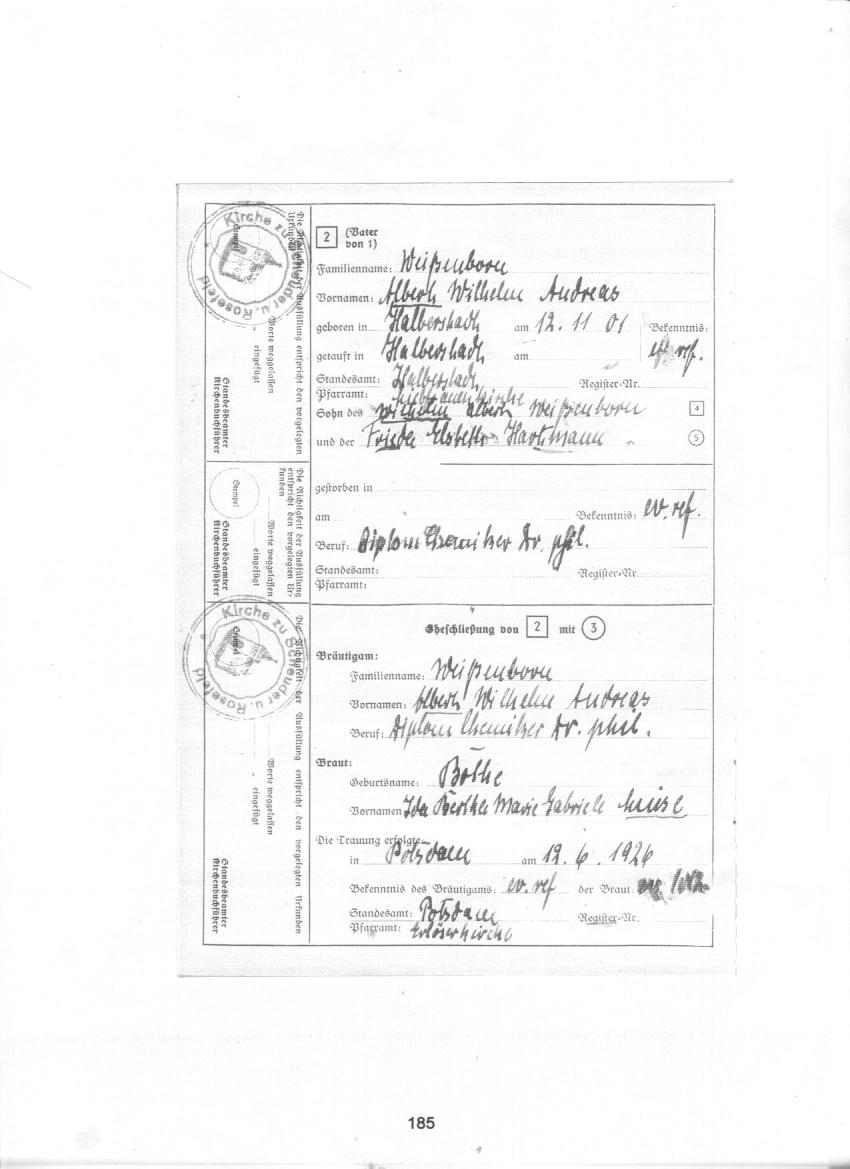 2 (Vater
von 1)
Familienname: Weißenborn
Vornamen: Albert Wilhelm Andreas
geboren in Halberstadt am 12. 11 01 Bekenntnis:
getauft in Halberstadt am ev. ref.
Standesamt: Halberstadt Register-Nr.
Pfarramt: Liebfrauenkirche
Sohn des Wilhelm Albert Weißenborn 4
und der Frieda Elsbeth Hartmann 5
gestorben in
am Bekenntnis: ev. ref.
Beruf: Diplom Chemiker Dr. phil.
Standesamt: Register-Nr.
Pfarramt:
Eheschließung von 2 mit 3
Bräutigam:
Familienname: Weißenborn
Vornamen: Albert Wilhelm Andreas
Beruf: Diplom Chemiker Dr. phil.
Braut:
Geburtsname: Bothe
Vornamen Ida Bertha Marie Gabriele Luise
Die Trauung erfolgte
in Potsdam am 12. 6. 1926
Bekenntnis des Bräutigams: ev. ref der Braut:
Standesamt: Potsdam Register-Nr.
Pfarramt: Erlöserkirche
Die Richtigkeit der Ausfüllung entspricht den vorgelegten
Urkunden
Worte weggelassen
" eingefügt
Standesbeamter
Kirchenbuchführer
Stempel
Kirche zu Scheuder u. Rosefeld
Die Richtigkeit der Ausfüllung
entspricht den vorgelegten Ur-
kunden
Worte weggelassen
eingefügt
Standesbeamter
Kirchenbuchführer
Stempel
Die Richtigkeit der Ausfüllung entspricht den vorgelegten Urkunden
Worte weggelassen
" eingefügt
Standesbeamter
Kirchenbuchführer
Stempel
Kirche zu Scheuder u. Rosefeld
185